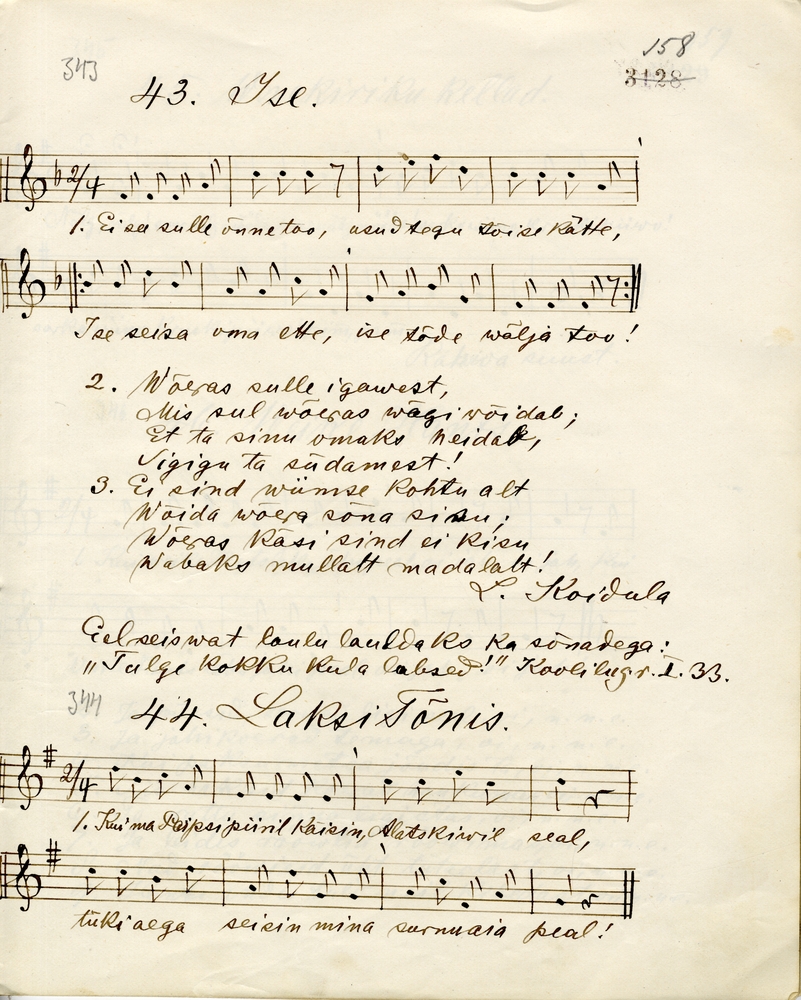 158
343
3128
43. Ise.
2/4
1. Ei see sulle õnne too, usud tegu tõise kätte,
Ise seisa oma ette, ise tõde wälja too!
2. Wõeras sulle igawest,
Mis sul wõeras wägi wõidab;
Et ta sinu omaks heidab,
Sigigu ta südamest!
3. Ei sind wiimse kohtu alt
Wõida wõera sõna sisu;
Wõeras käsi sind ei kisu
Wabaks mullatt madalalt!
L. Koidula
Eelseiswat laulu lauldakse ka sõnadega:
„Tulge kokku küla lapsed!" Koolilugr. I. 33.
344
44. Laksi Tõnis.
2/4
1. Kui ma Peipsi piiril käisin, Alatskiwil seal,
tüki aega seisin mina surnuaia peal!